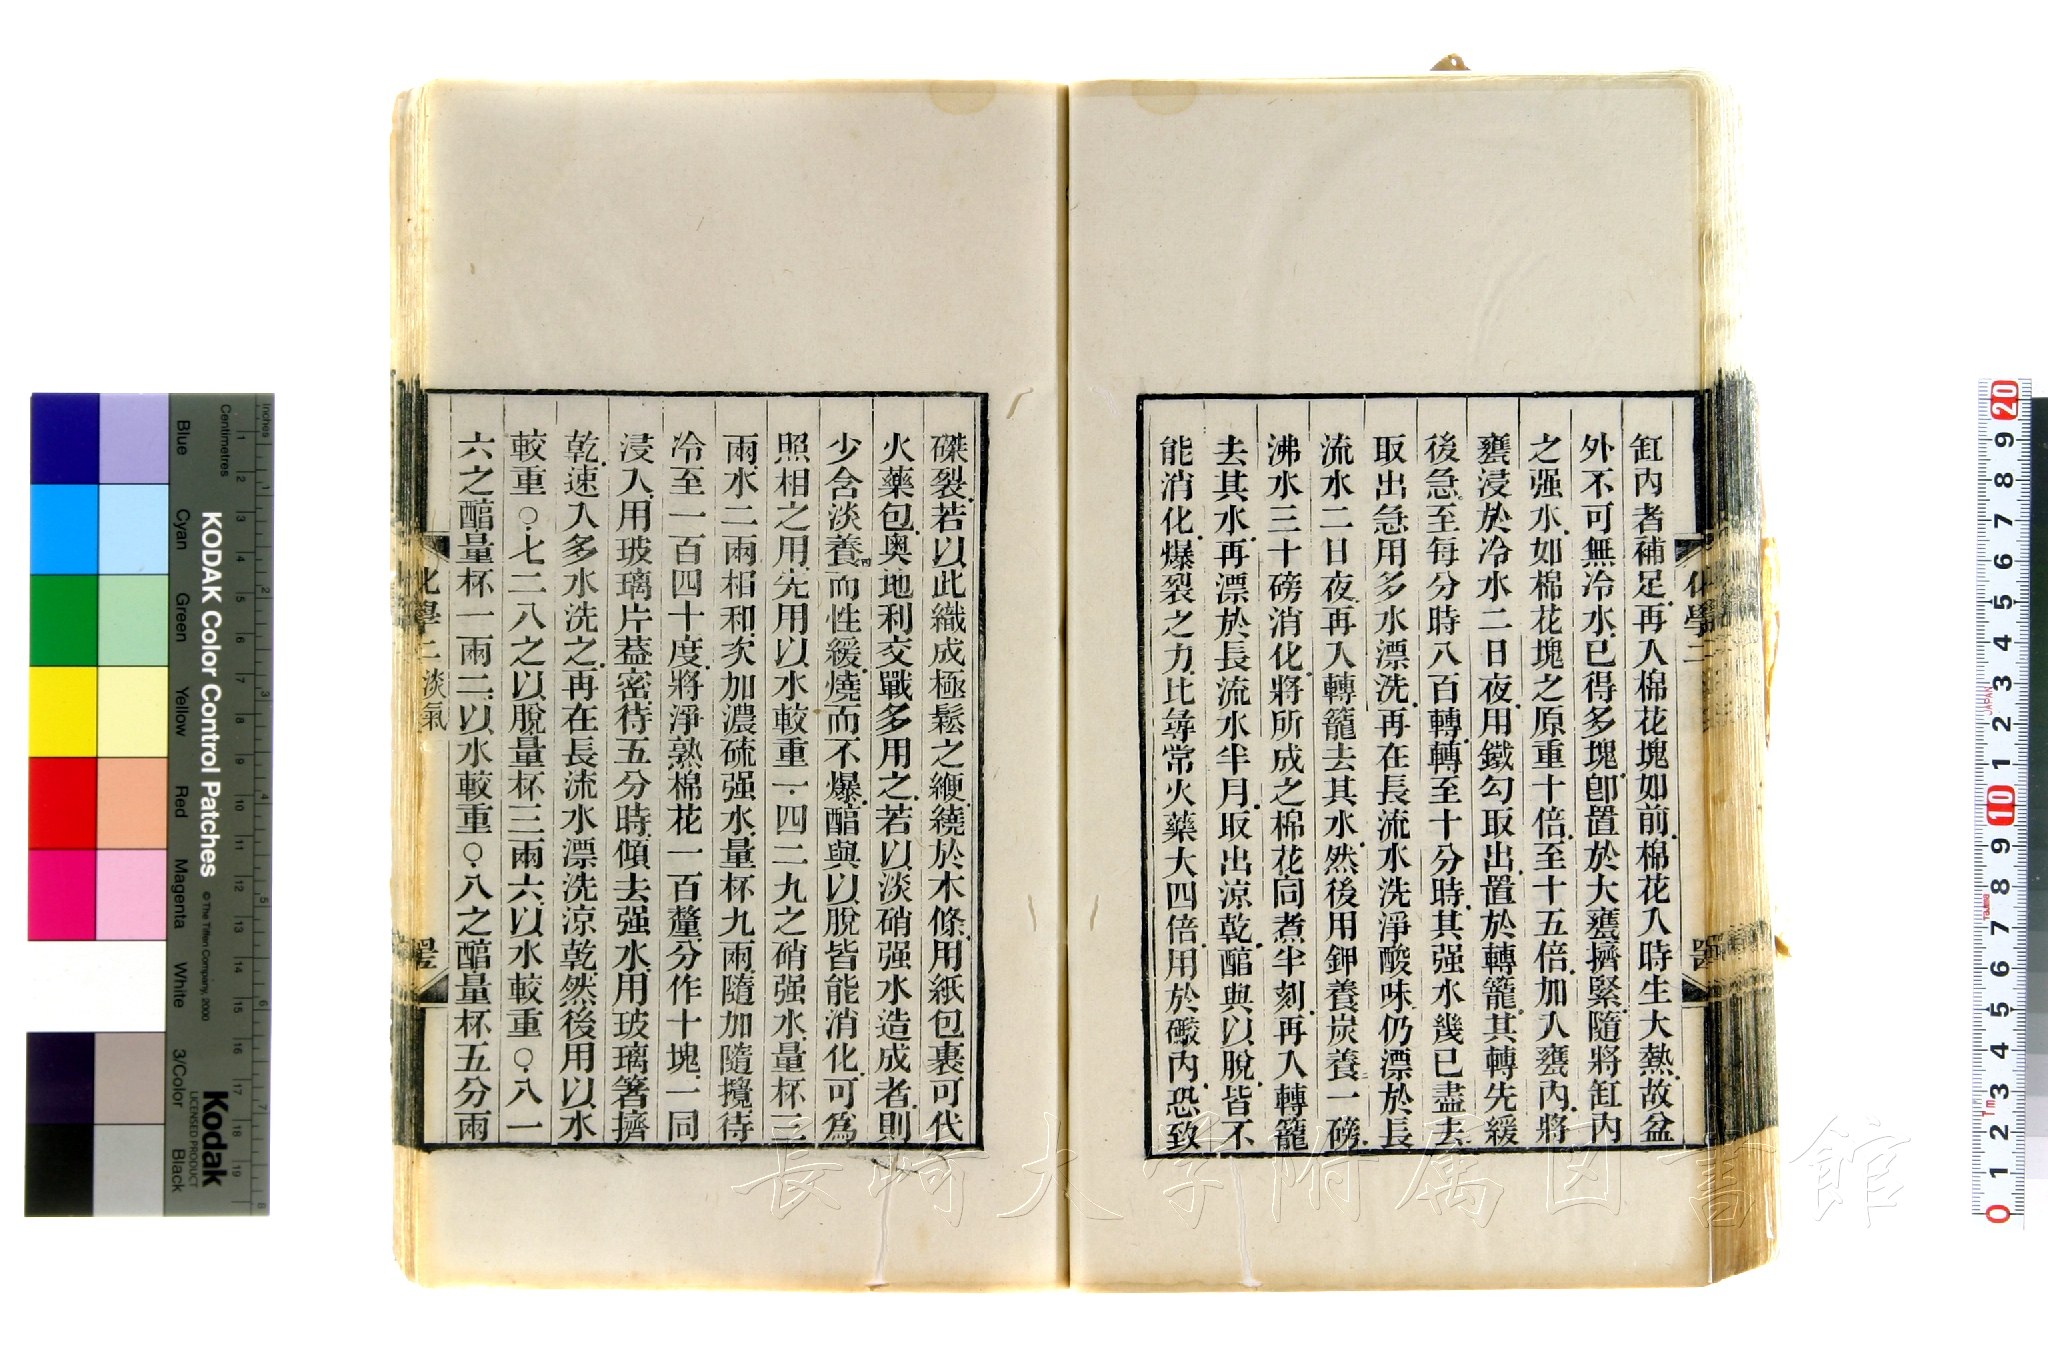 缸內者補足.再入棉花塊如前.棉花入時生大熱.故盆
外不可無冷水.已得多塊.卽置於大甕擠緊.隨將缸內
之强水.如棉花塊之原重十倍.至十五倍.加入甕內.將
甕浸於冷水二日夜.用鐵勾取出.置於轉籠.其轉先緩
後急.至每分時八百轉.轉至十分時.其强水幾已盡去.
取出急用多水漂洗.再在長流水洗淨酸味.仍漂於長
流水二日夜.再入轉籠去其水.然後用鉀養炭養一磅.
沸水三十磅消化.將所成之棉花同煮半刻.再入轉籠
去其水.再漂於長流水半月.取出涼乾.醕與以脫.皆不
能消化.爆裂之力.比尋常火藥大四倍.用於礮內.恐致
化學二
磔裂.若以此織成極鬆之綆.繞於木條.用紙包裹可代
火藥包.奧地利交戰多用之.若以淡硝强水造成者.則
少含淡養四而性緩.燒而不爆.醕與以脫皆能消化.可爲
照相之用.先用以水較重一.四二九之硝强水.量杯三
兩.水二兩相和.次加濃硫强水.量杯九兩.隨加隨攪.待
冷至一百四十度.將淨熟棉花一百釐.分作十塊.一同
浸入.用玻璃片葢密.待五分時.傾去强水.用玻璃箸擠
乾.速入多水洗之.再在長流水漂洗涼乾.然後用以水
較重○.七二八之以脫.量杯三兩六.以水較重○.八一
六之醕.量杯一兩二.以水較重○.八之醕.量杯五分兩
化學二 淡氣
KODAK Color Control Patches
© The Tiffen Company, 2000
Kodak
LICENSED PRODUCT
Inches
Centimetres
Blue Cyan Green Yellow Red Magenta White 3/Color Black
1 2 3 4 5 6 7 8 9 10 11 12 13 14 15 16 17 18 19
20 9 8 7 6 5 4 3 2 1 10 9 8 7 6 5 4 3 2 1 0
JAPAN
長崎大学附属図書館